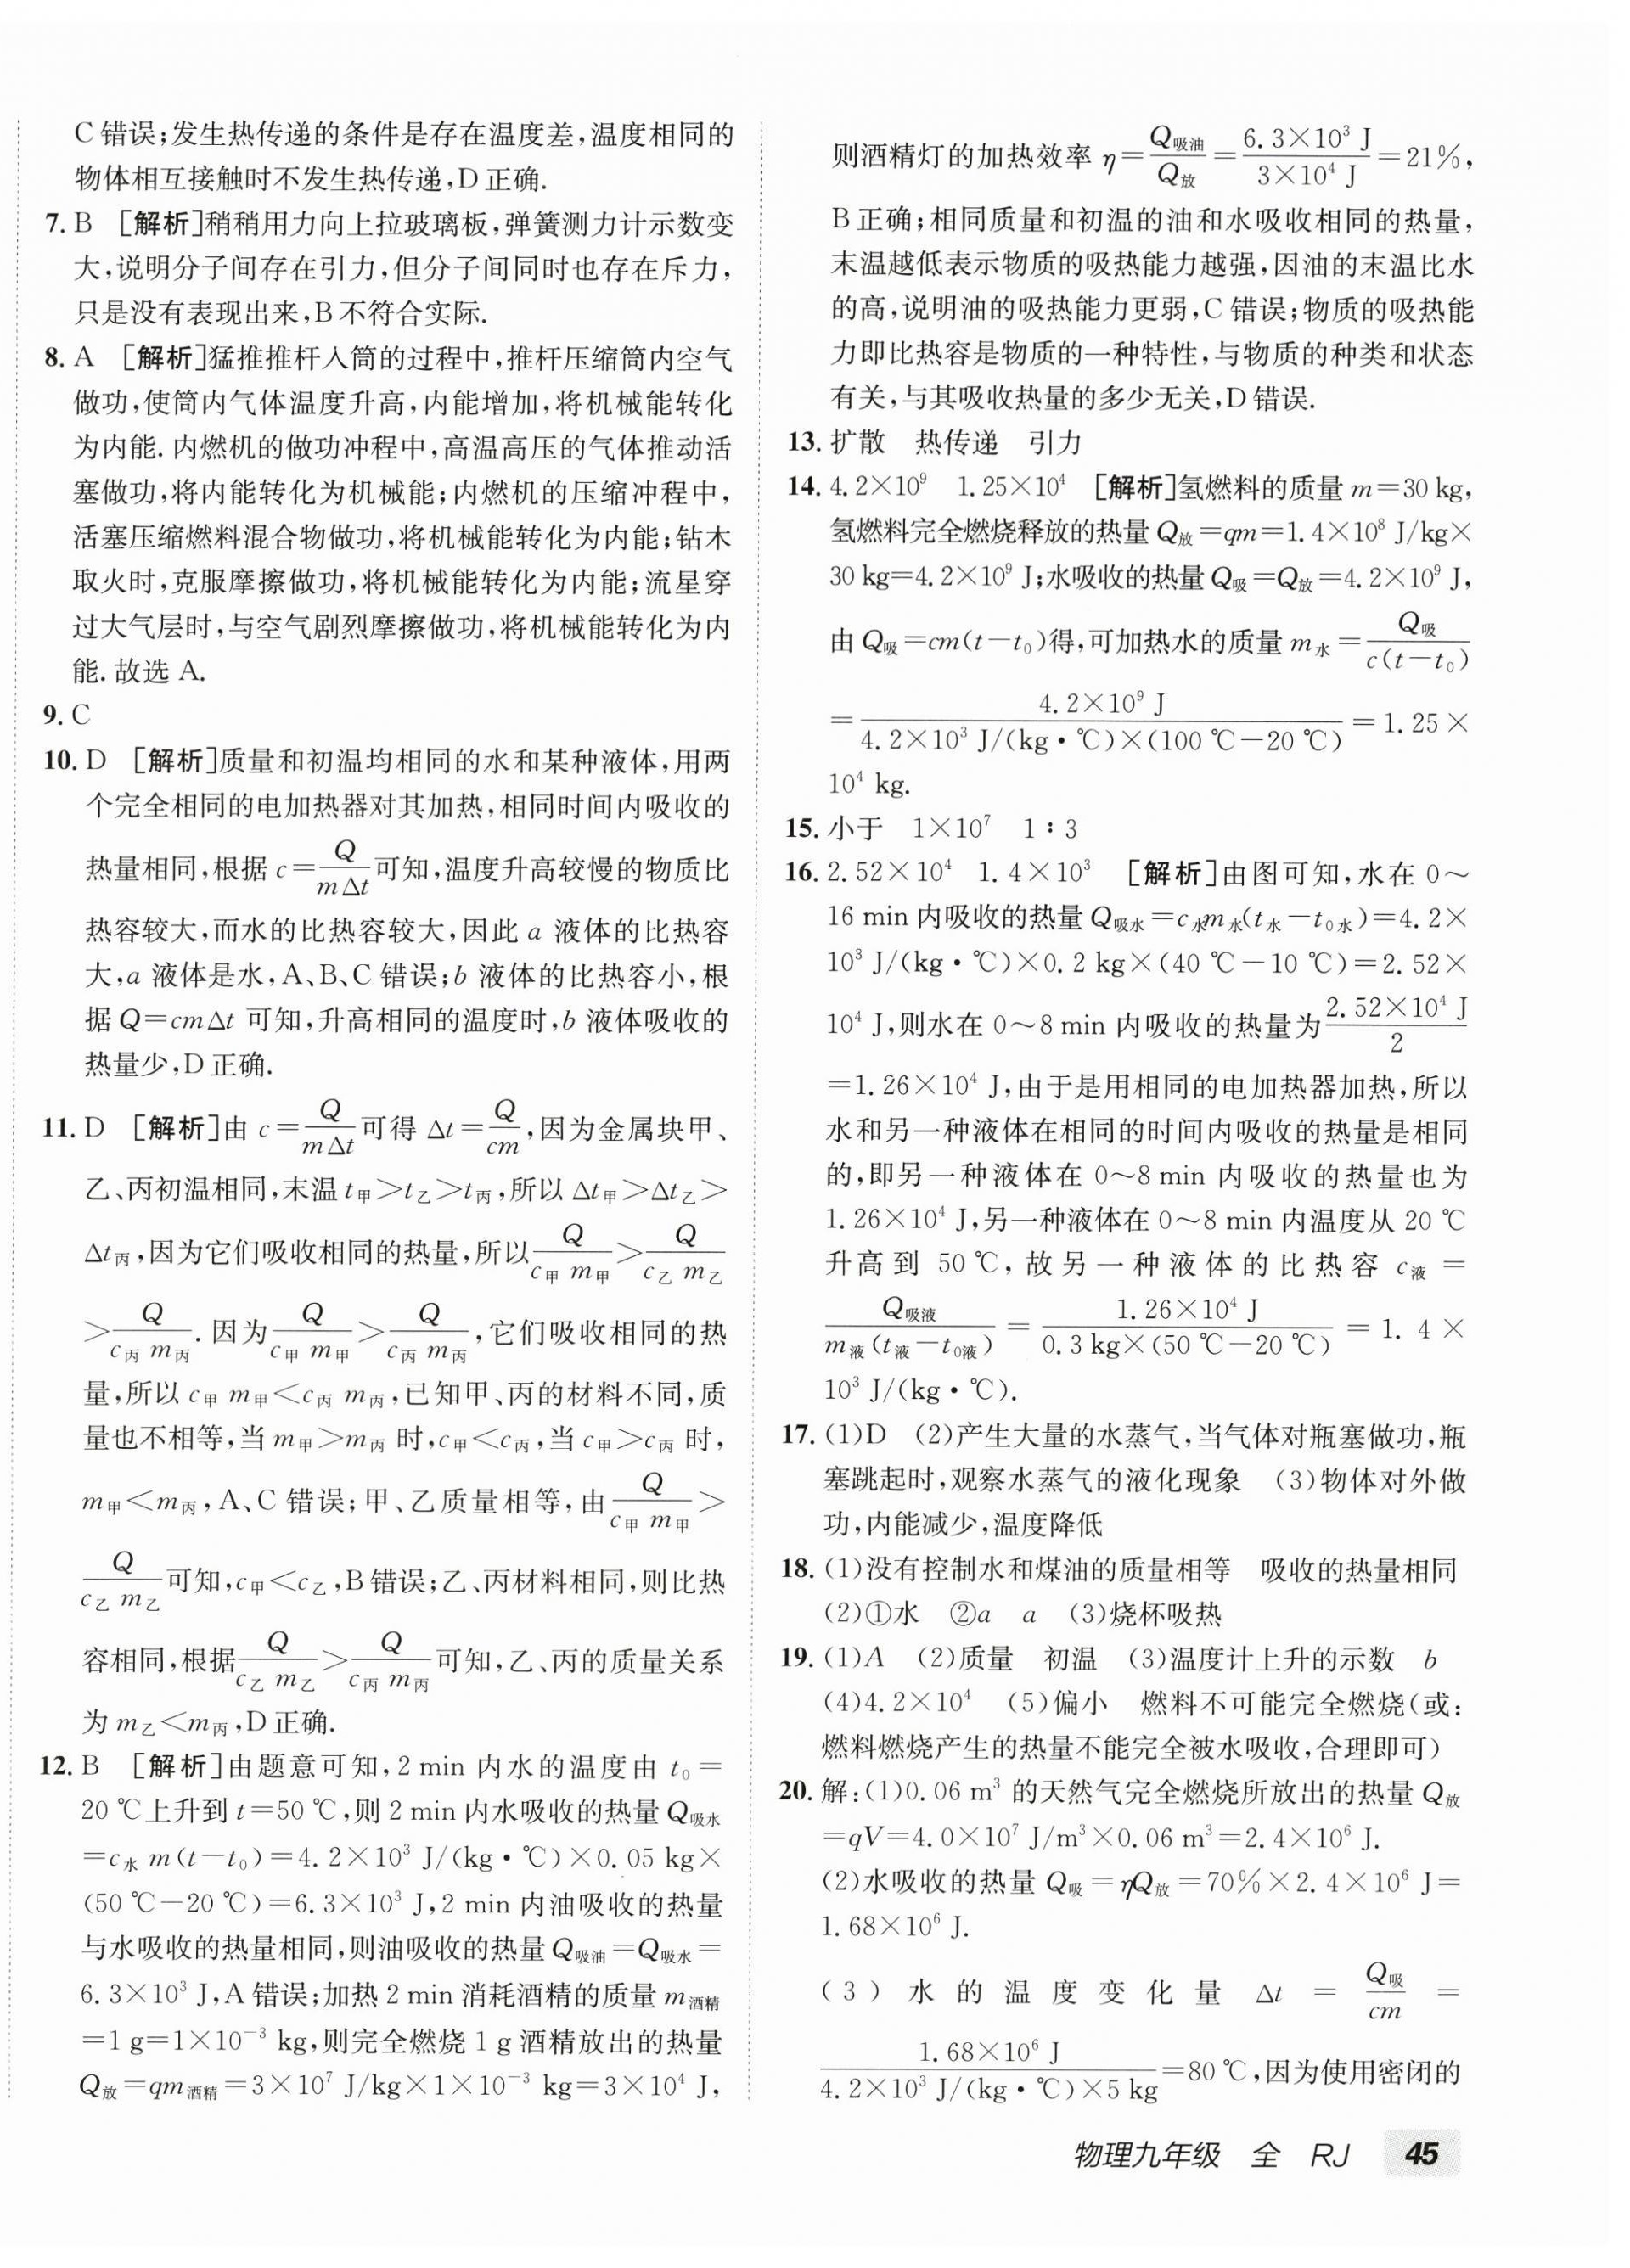 C错误;发生热传递的条件是存在温度差,温度相同的
物体相互接触时不发生热传递,D正确.
7. B [解析]稍稍用力向上拉玻璃板,弹簧测力计示数变
大,说明分子间存在引力,但分子间同时也存在斥力,
只是没有表现出来,B不符合实际.
8. A [解析]猛推推杆入筒的过程中,推杆压缩筒内空气
做功,使筒内气体温度升高,内能增加,将机械能转化
为内能. 内燃机的做功冲程中,高温高压的气体推动活
塞做功,将内能转化为机械能;内燃机的压缩冲程中,
活塞压缩燃料混合物做功,将机械能转化为内能;钻木
取火时,克服摩擦做功,将机械能转化为内能;流星穿
过大气层时,与空气剧烈摩擦做功,将机械能转化为内
能. 故选 A.
9. C
10. D [解析]质量和初温均相同的水和某种液体,用两
个完全相同的电加热器对其加热,相同时间内吸收的
热量相同,根据 c=Q/(mΔt)可知,温度升高较慢的物质比
热容较大,而水的比热容较大,因此 a 液体的比热容
大,a 液体是水,A、B、C错误;b 液体的比热容小,根
据 Q=cmΔt 可知,升高相同的温度时,b 液体吸收的
热量少,D正确.
11. D [解析]由 c=Q/(mΔt)可得 Δt=Q/(cm),因为金属块甲、
乙、丙初温相同,末温 t甲>t乙>t丙,所以 Δt甲>Δt乙>
Δt丙,因为它们吸收相同的热量,所以Q/(c甲m甲)>Q/(c乙m乙)
>Q/(c丙m丙). 因为Q/(c甲m甲)>Q/(c丙m丙),它们吸收相同的热
量,所以 c甲m甲<c丙m丙,已知甲、丙的材料不同,质
量也不相等,当 m甲>m丙 时,c甲<c丙,当 c甲>c丙 时,
m甲<m丙,A、C错误;甲、乙质量相等,由Q/(c甲m甲)>
Q/(c乙m乙)可知,c甲<c乙,B错误;乙、丙材料相同,则比热
容相同,根据Q/(c乙m乙)>Q/(c丙m丙)可知,乙、丙的质量关系
为 m乙<m丙,D正确.
12. B [解析]由题意可知,2 min 内水的温度由 t₀=
20 ℃上升到 t=50 ℃,则 2 min 内水吸收的热量 Q吸水
=c水m(t-t₀)=4.2×10³ J/(kg·℃)×0.05 kg×
(50 ℃-20 ℃)=6.3×10³ J,2 min 内油吸收的热量
与水吸收的热量相同,则油吸收的热量 Q吸油=Q吸水=
6.3×10³ J,A错误;加热 2 min 消耗酒精的质量 m酒精
=1 g=1×10⁻³ kg,则完全燃烧 1 g 酒精放出的热量
Q放=qm酒精=3×10⁷ J/kg×1×10⁻³ kg=3×10⁴ J,
则酒精灯的加热效率 η=Q吸油/Q放=(6.3×10³ J)/(3×10⁴ J)=21%,
B正确;相同质量和初温的油和水吸收相同的热量,
末温越低表示物质的吸热能力越强,因油的末温比水
的高,说明油的吸热能力更弱,C错误;物质的吸热能
力即比热容是物质的一种特性,与物质的种类和状态
有关,与其吸收热量的多少无关,D错误.
13. 扩散 热传递 引力
14. 4.2×10⁹ 1.25×10⁴ [解析]氢燃料的质量 m=30 kg,
氢燃料完全燃烧释放的热量 Q放=qm=1.4×10⁸ J/kg×
30 kg=4.2×10⁹ J;水吸收的热量 Q吸=Q放=4.2×10⁹ J,
由 Q吸=cm(t-t₀)得,可加热水的质量 m水=Q吸/(c(t-t₀))
=(4.2×10⁹ J)/(4.2×10³ J/(kg·℃)×(100 ℃-20 ℃))=1.25×
10⁴ kg.
15. 小于 1×10⁷ 1∶3
16. 2.52×10⁴ 1.4×10³ [解析]由图可知,水在 0～
16 min 内吸收的热量 Q吸水=c水m水(t水-t₀水)=4.2×
10³ J/(kg·℃)×0.2 kg×(40 ℃-10 ℃)=2.52×
10⁴ J,则水在 0～8 min 内吸收的热量为(2.52×10⁴ J)/2
=1.26×10⁴ J,由于是用相同的电加热器加热,所以
水和另一种液体在相同的时间内吸收的热量是相同
的,即另一种液体在 0～8 min 内吸收的热量也为
1.26×10⁴ J,另一种液体在 0～8 min 内温度从 20 ℃
升高到 50 ℃,故另一种液体的比热容 c液=
Q吸液/(m液(t液-t₀液))=(1.26×10⁴ J)/(0.3 kg×(50 ℃-20 ℃))=1.4×
10³ J/(kg·℃).
17. (1)D (2)产生大量的水蒸气,当气体对瓶塞做功,瓶
塞跳起时,观察水蒸气的液化现象 (3)物体对外做
功,内能减少,温度降低
18. (1)没有控制水和煤油的质量相等 吸收的热量相同
(2)①水 ②a a (3)烧杯吸热
19. (1)A (2)质量 初温 (3)温度计上升的示数 b
(4)4.2×10⁴ (5)偏小 燃料不可能完全燃烧(或:
燃料燃烧产生的热量不能完全被水吸收,合理即可)
20. 解:(1)0.06 m³ 的天然气完全燃烧所放出的热量 Q放
=qV=4.0×10⁷ J/m³×0.06 m³=2.4×10⁶ J.
(2)水吸收的热量 Q吸=ηQ放=70%×2.4×10⁶ J=
1.68×10⁶ J.
(3)水的温度变化量 Δt=Q吸/(cm)=
(1.68×10⁶ J)/(4.2×10³ J/(kg·℃)×5 kg)=80 ℃,因为使用密闭的
物理九年级 全 RJ 45